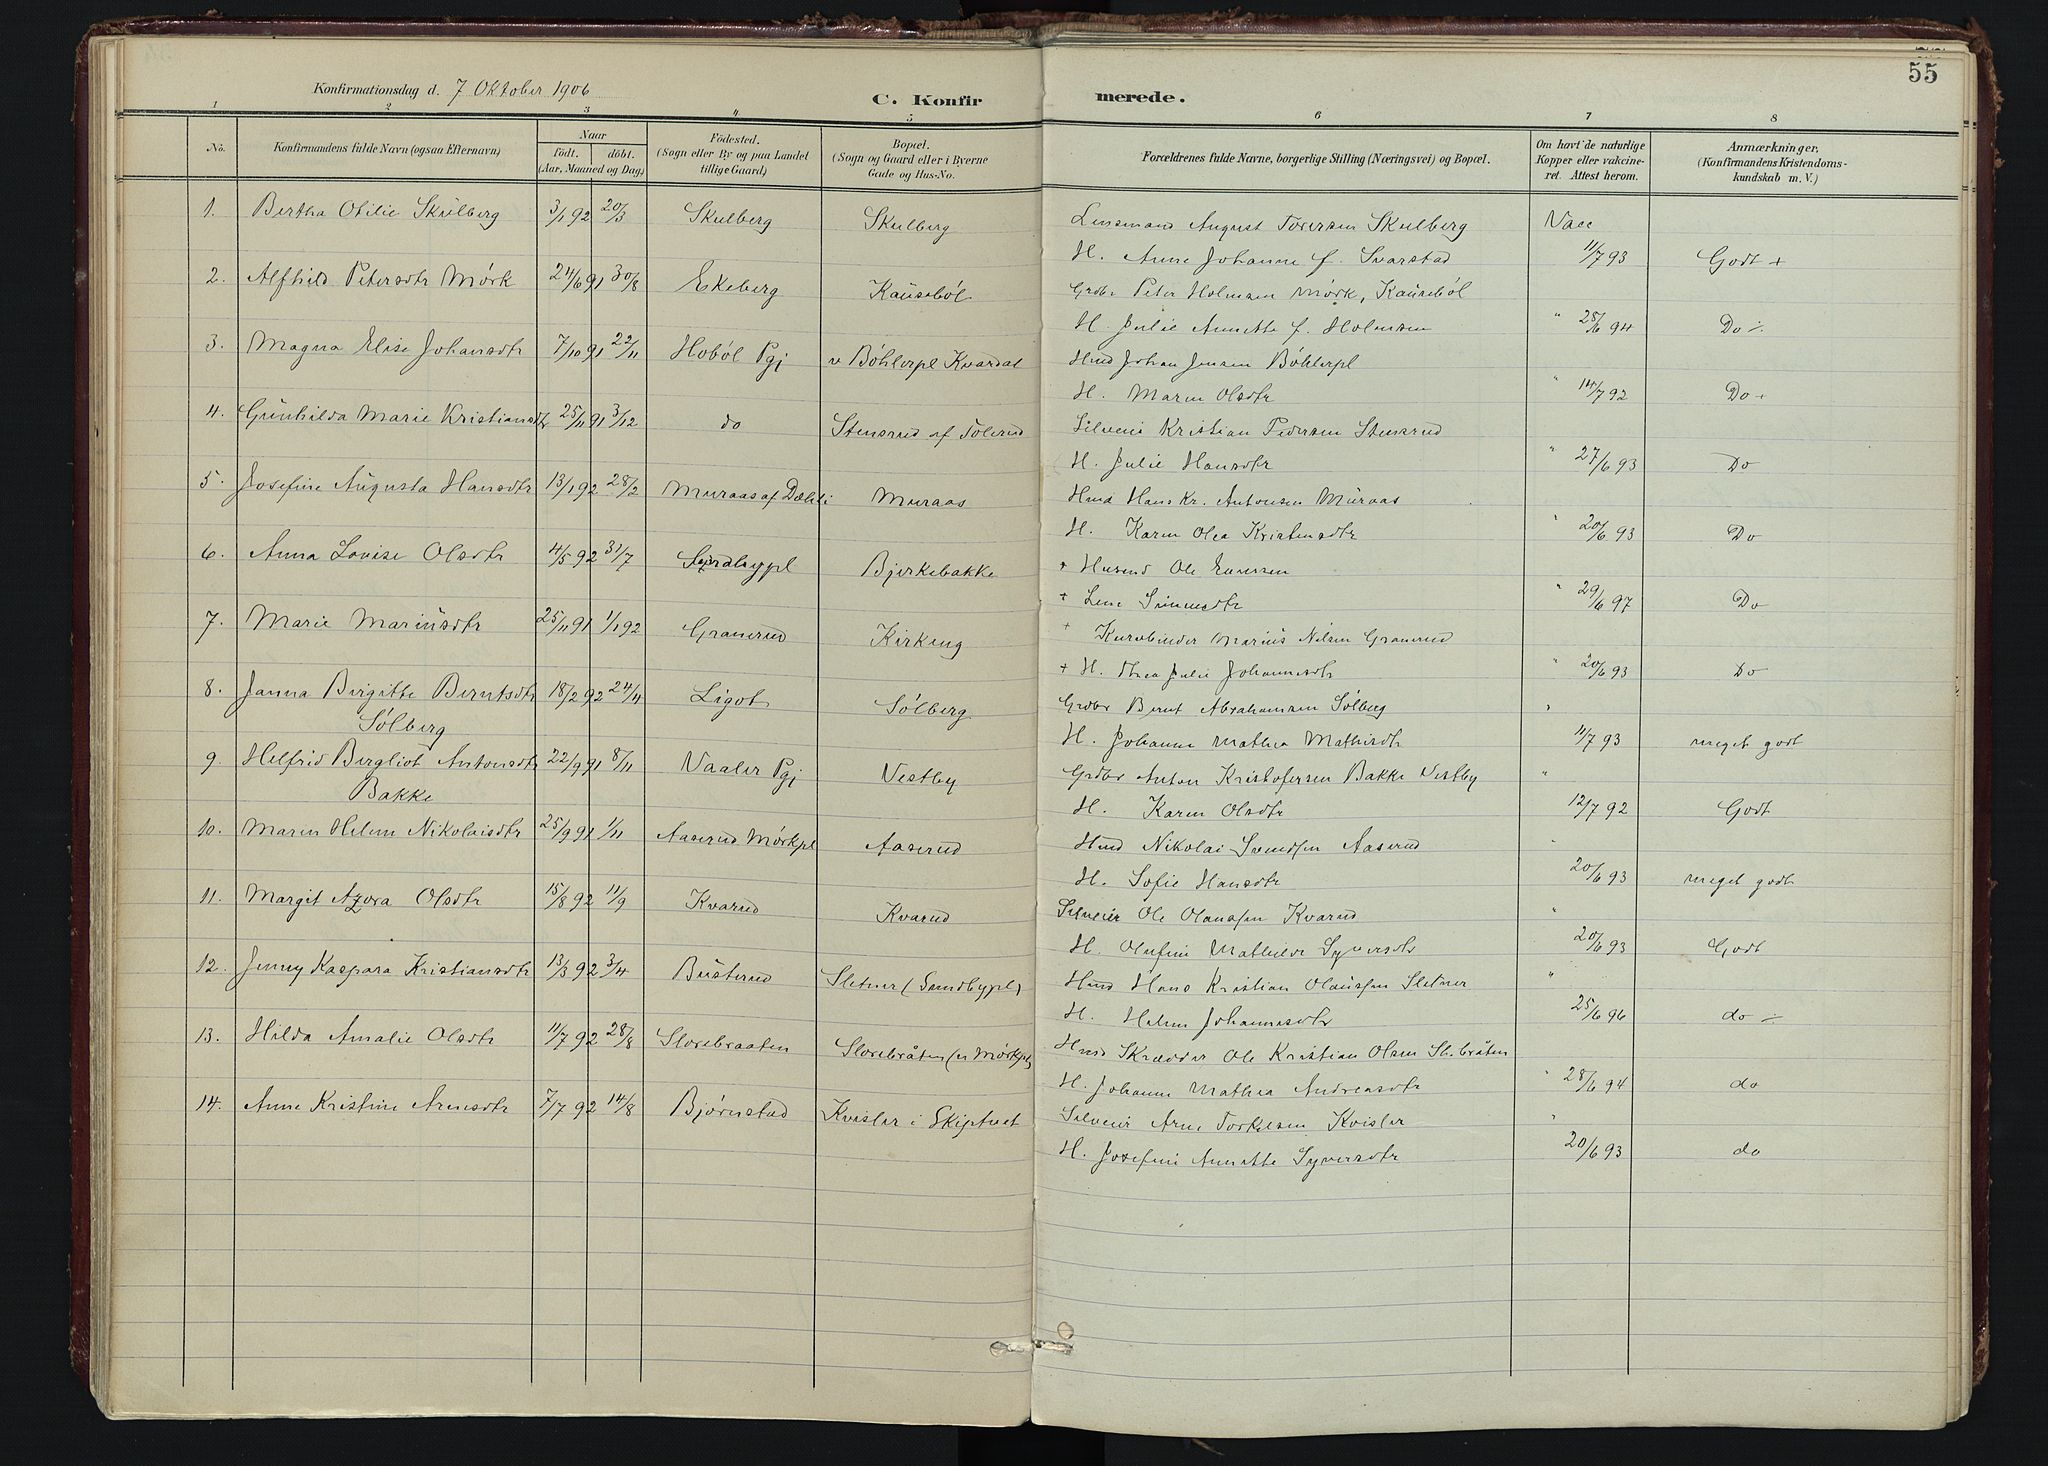 55
Konfirmationsdag d. 7 Oktober 1906
C. Konfirmerede.
1 2 3 4 5 6 7 8
No. Konfirmandens fulde Navn (ogsaa Efternavn) Naar født. døbt. (Aar, Maaned og Dag) Fødested. (Sogn eller By og paa Landet tillige Gaard) Bopæl. (Sogn og Gaard eller i Byerne Gade og Hus-No. Forældrenes fulde Navne, borgerlige Stilling (Næringsvei) og Bopæl. Om havt de naturlige Kopper eller vakcineret. Attest herom. Anmærkninger, (Konfirmandens Kristendomskundskab m. V.)
1. Bertha Otilie Skulberg 3/1 92 20/3 Skulberg Skulberg Lensmand August Toversen Skulberg Vacc
H. Anne Johanne f. Svarstad 11/7 93 Godt +
2. Alfhild Petersdtr Mørk 24/6 91 30/8 Ekeberg Kausebøl Grdbr Peter Holmsen Mørk, Kausebøl
H. Julie Annette f. Holmsen " 28/6 94 Do ÷
3. Magna Elise Johansdtr 7/10 91 22/11 Hobøl Pgj v Bøhlerpl Kvardal Hmd Johan Jensen Bøhlerpl
H. Maren Olsdtr " 14/7 92 Do +
4. Gunhilda Marie Kristiansdtr 25/11 91 3/12 do Stensrud af Tolerud Selveier Kristian Pedersen Stensrud
H. Julie Hansdtr " 27/6 93 Do
5. Josefine Augusta Hansdtr 13/1 92 28/2 Muraas af Dæhli Muraas Hmd Hans Kr. Antonsen Muraas
H. Karen Olea Kristensdtr " 20/6 93 Do
6. Anna Lovise Olsdtr 4/5 92 31/7 Sundbypl Bjerkebakke + Husmd Ole Enersen
+ Lene Simensdtr " 29/6 97 Do
7. Marie Mariusdtr 25/11 91 1/1 92 Granerud Kirkeng + Kurvbinder Marius Nilsen Granerud
+ H. Thea Julie Johannesdtr " 20/6 93 Do
8. Janna Birgitte Berntsdtr 18/2 92 24/4 Ligot Sølberg Grdbr Bernt Abrahamsen Sølberg "
Sølberg H. Johanne Mathea Mathisdtr 11/7 93 meget godt
9 Helfrid Bergliot Antonsdtr 22/9 91 8/11 Vaaler Pgj Vestby Grdbr Anton Kristofersen Bakke Vestby "
Bakke H. Karen Olsdtr 12/7 92 Godt
10. Maren Helene Nikolaisdtr 25/9 91 1/11 Aaserud Mørkpl Aaserud Hmd Nikolai Svendsen Aaserud "
H. Sofie Hansdtr 20/6 93 meget godt
11. Margit Azora Olsdtr 15/8 92 11/9 Kvarud Kvarud Selveier Ole Olaussen Kvarud "
H. Olufine Mathilde Syversdtr 20/6 93 Godt
12. Jenny Kaspara Kristiansdtr 13/3 92 3/4 Busterud Sletner (Sundbypl) Hmd Hans Kristian Olaussen Sletner "
H. Helene Johannesdtr 25/6 96 do ÷
13. Hilda Amalie Olsdtr 11/7 92 28/8 Slorebraaten Slorebråten (u Mørkpl) Hmd Skrædder Ole Kristian Olsen Sl.bråten
H. Johanne Mathea Andreasdtr " 28/6 94 do
14. Anne Kristine Arnesdtr 7/7 92 14/8 Bjørnstad Kvisler i Skiptvet Selveier Arne Torkelsen Kvisler "
H. Josefine Annette Syversdtr 20/6 93 do